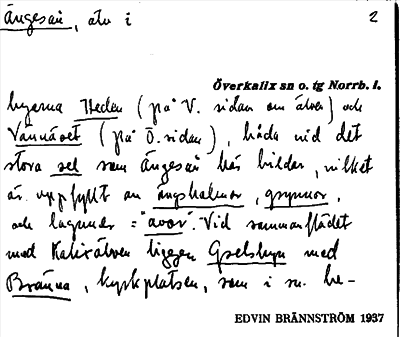 Ängesån, älv i 2
Överkalix sn o. tg Norrb. l.
byarna Heden (på V. sidan om älven) och
Vännäset (på Ö. sidan), båda vid det
stora sel som Ängesån här bildar, vilket
är uppfyllt av ängsholmar, grynnor,
och laguner = "avor". Vid sammanflödet
med Kalixälven ligger Gselsbyn med
Bränna, kyrkplatsen, som i sn. be-
EDVIN BRÄNNSTRÖM 1937